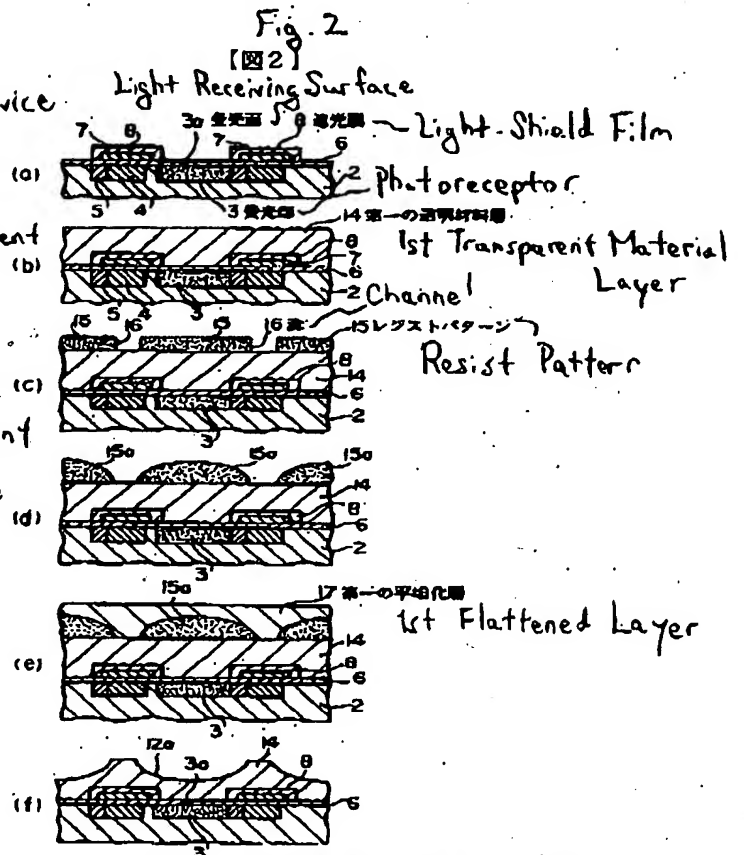 Fig. 2
【図2】
vice Light Receiving Surface
3a 受光面 8 遮光膜 Light-Shield Film
7 8 7 6
(a) 2
5 4 3 受光部 Photoreceptor
14 第一の透明材料層
ent 8 1st Transparent Material
(b) 7 Layer
6
2
5 4 3
Channel
15 16 15 16 溝 15 レジストパターン
Resist Pattern
(c) 8
14
6
2
3
nt
15a 15a 15a
14
(d) 8
6
2
3
15a 17 第一の平坦化層
1st Flattened Layer
14
(e) 8
6
2
3
12a 3a 14
8
(f) 6
3